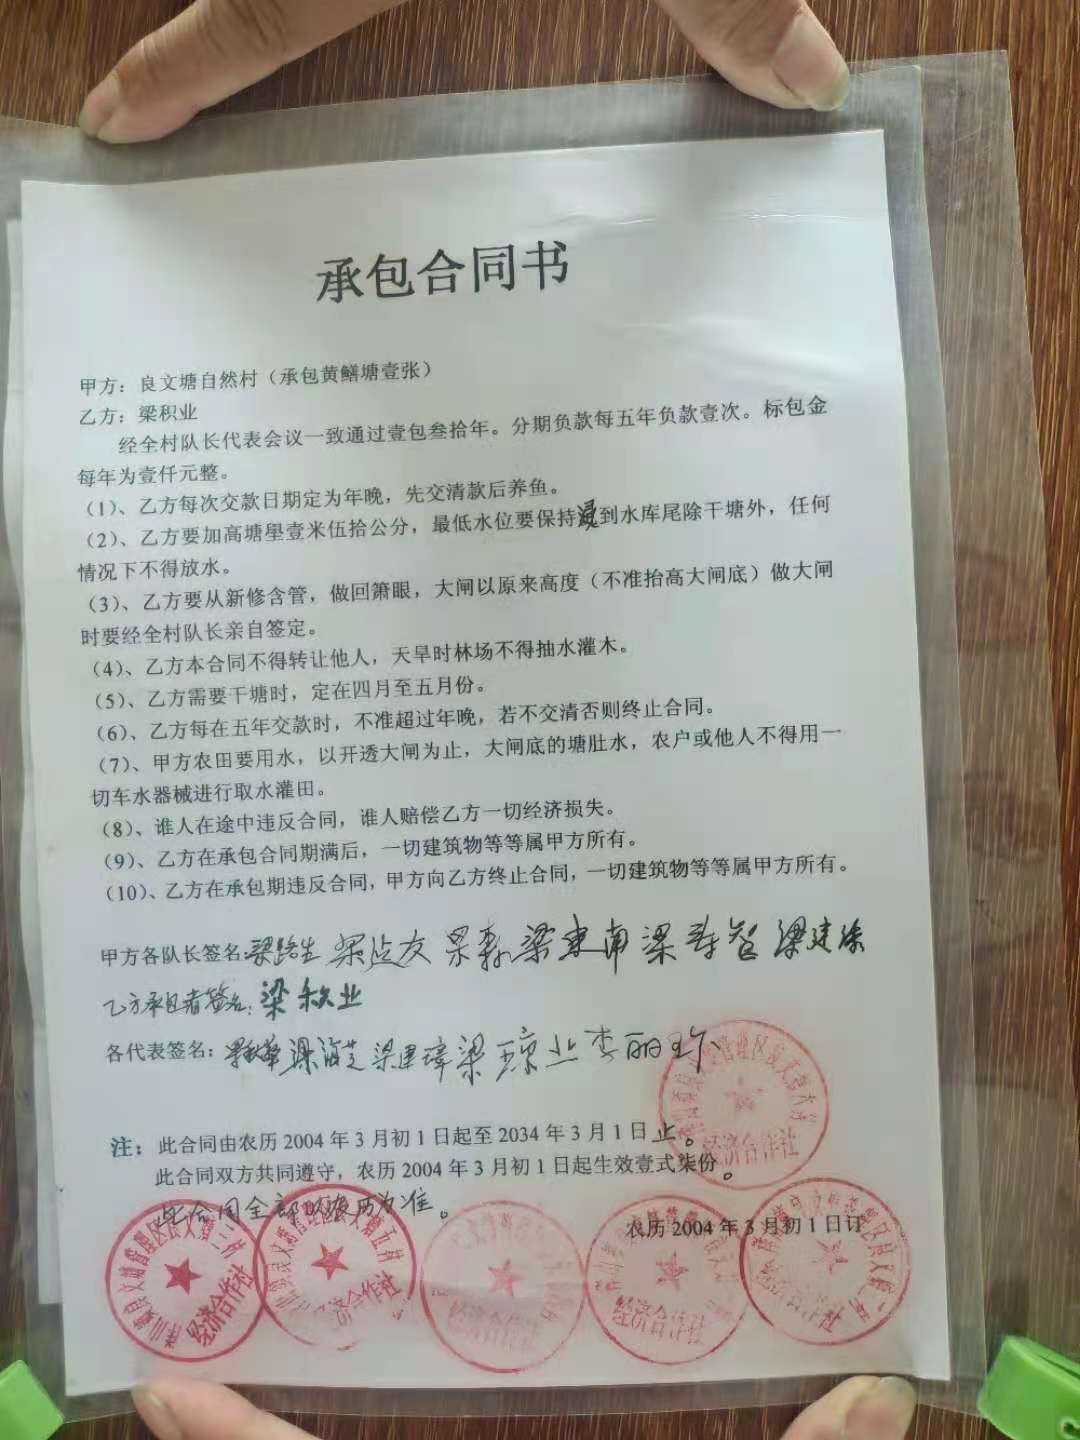 承包合同书
甲方：良文塘自然村（承包黄鳝塘壹张）
乙方：梁积业
经全村队长代表会议一致通过壹包叁拾年。分期负款每五年负款壹次。标包金
每年为壹仟元整。
（1）、乙方每次交款日期定为年晚，先交清款后养鱼。
（2）、乙方要加高塘壆壹米伍拾公分，最低水位要保持浸到水库尾除干塘外，任何
情况下不得放水。
（3）、乙方要从新修含管，做回箫眼，大闸以原来高度（不准抬高大闸底）做大闸
时要经全村队长亲自签定。
（4）、乙方本合同不得转让他人，天旱时林场不得抽水灌木。
（5）、乙方需要干塘时，定在四月至五月份。
（6）、乙方每在五年交款时，不准超过年晚，若不交清否则终止合同。
（7）、甲方农田要用水，以开透大闸为止，大闸底的塘肚水，农户或他人不得用一
切车水器械进行取水灌田。
（8）、谁人在途中违反合同，谁人赔偿乙方一切经济损失。
（9）、乙方在承包合同期满后，一切建筑物等等属甲方所有。
（10）、乙方在承包期违反合同，甲方向乙方终止合同，一切建筑物等等属甲方所有。
甲方各队长签名：梁 友 梁东南 梁寿智 梁建
乙方承包者签名：梁积业
各代表签名： 梁 梁建 梁琼业 李丽珍
注：此合同由农历 2004 年 3 月初 1 日起至 2034 年 3 月 1 日止。
此合同双方共同遵守，农历 2004 年 3 月初 1 日起生效壹式柒份。
此合同全部以农历为准。
农历 2004 年 3 月初 1 日订
经济合作社
经济合作社
经济合作社
经济合作社
经济合作社